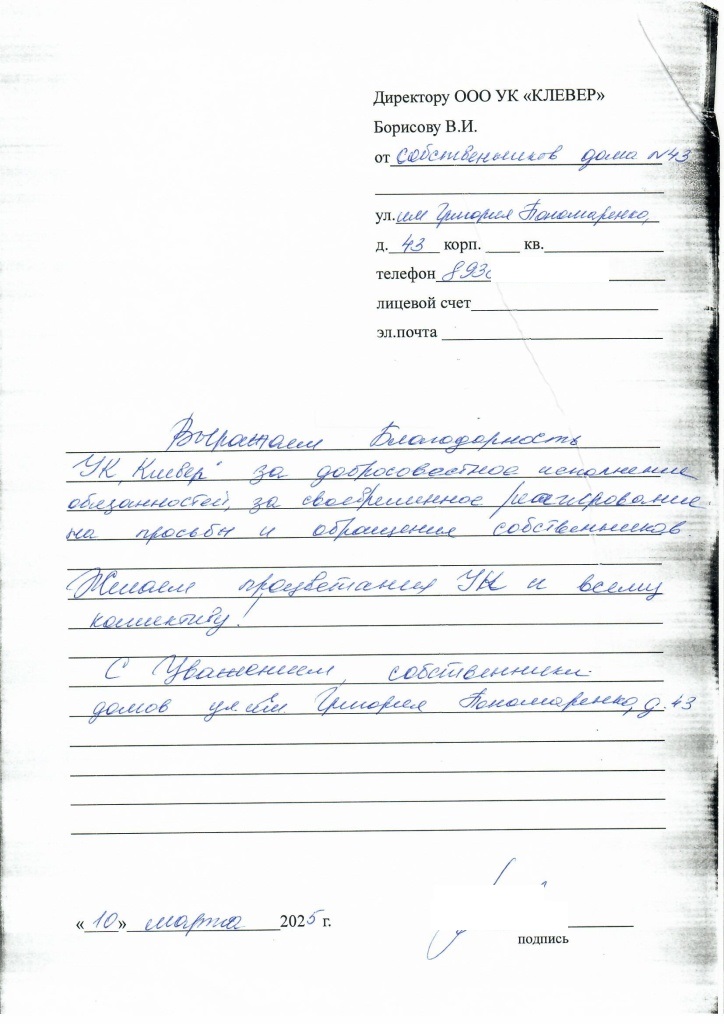 Директору ООО УК «КЛЕВЕР»
Борисову В.И.
от Собственников дома №43
ул. им Григория Пономаренко,
д. 43 корп. ____ кв.____
телефон 893
лицевой счет
эл.почта
Выражаем Благодарность
УК „Клевер" за добросовестное исполнение
обязанностей, за своевременное реагирование
на просьбы и обращения собственников.
Желаем процветания УК и всему
коллективу!
С Уважением, собственники
домов ул им Григория Пономаренко, д. 43
«10» марта 2025 г.
подпись